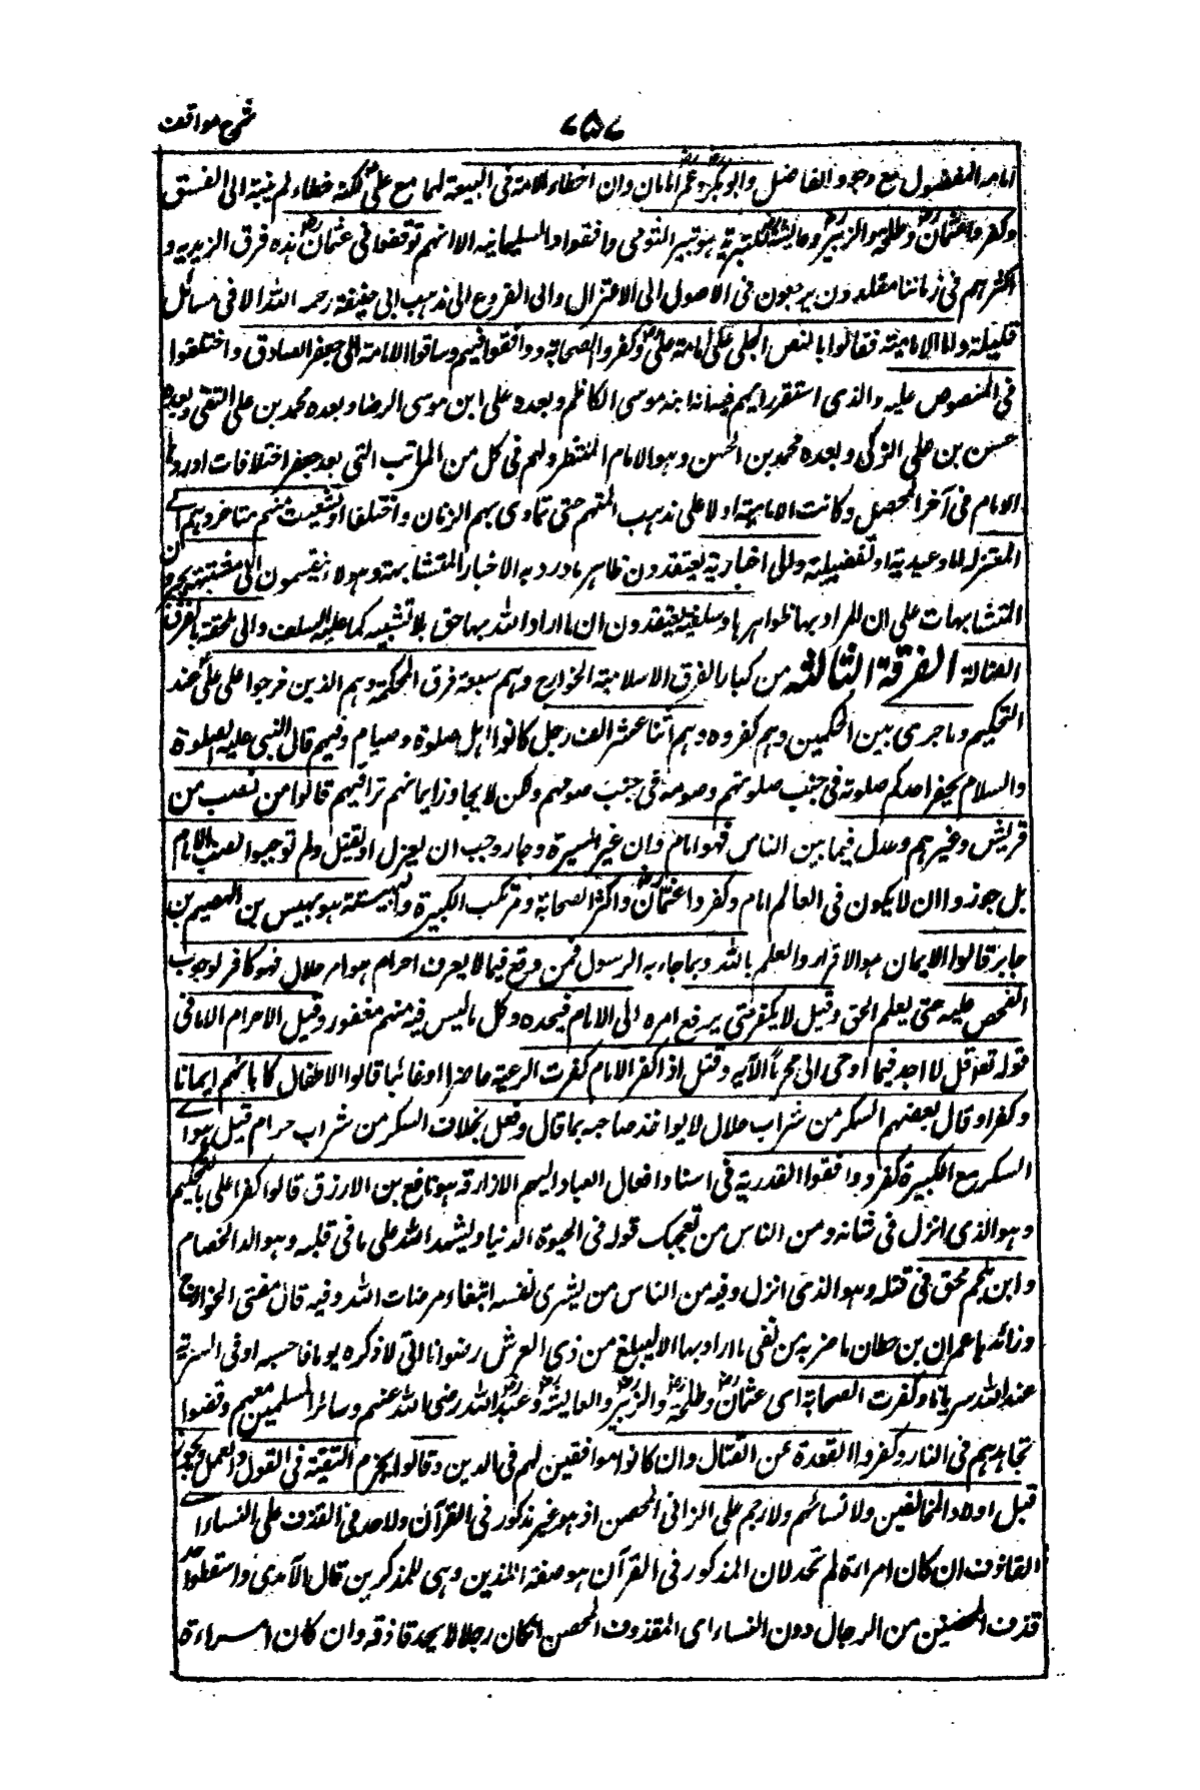 شرح مواقف
٧٥٧
امامة المفضول مع وجود الفاضل وابو بکر وعمر امامان وان اخطاء الامة فی البیعة لهما مع علی لکنه خطاء لم ینبته الی الفسق
وکفروا عثمان وطلحة والزبیر وعایشة البتیریة هو تبیر الثومی وافقوا السلیمانیه الا انهم توقفوا فی عثمان هذه فرق الزیدیه و
اکثرهم فی زماننا مقلدون یرجعون فی الاصول الی الاعتزال والی الفروع الی مذهب ابی حنیفة رحمه الله الا فی مسائل
قلیلة واما الامامیة فقالوا بالنص الجلی علی امامة علی وکفروا الصحابة ووافقوا فیهم وساقوا الامامة الی جعفر الصادق واختلفوا
فی المنصوص علیه والذی استقر رایهم فیه انه ابنه موسی الکاظم وبعده علی ابن موسی الرضا وبعده محمد بن علی التقی وبعده
حسن بن علی الزکی وبعده محمد بن الحسن وهو الامام المنتظر ولهم فی کل من المراتب التی بعد جعفر اختلافات اوردها
الامام فی آخر المحصل وکانت الامامیة اولا علی مذهب ائمتهم حتی تمادی بهم الزمان واختلفوا وتشعبت منهم متاخروهم الے
المعتزله اما وعیدیة او تفضیلیة والی اخباریة یعتقدون ظاهر ما ورد به الاخبار المتشابهة وهولاء ینقسمون الی مشبهة یجرون
المتشابهات علی ان المراد بها ظواهرها وسلفیة یعتقدون ان ما اراد الله بها حق بلا تشبیه کما علیه السلف والی ملتحقة بالفرق
الضالة الفرقة الثالثة من کبار الفرق الاسلامیة الخوارج وهم سبعة فرق المحکمة وهم الذین خرجوا علی علی عند
التحکیم وما جری بین الحکمین وهم کفروه وهم اثنا عشر الف رجل کانوا اهل صلوة وصیام وفیهم قال النبی علیه الصلوة
والسلام یحقر احدکم صلوته فی جنب صلوتهم وصومه فی جنب صومهم ولکن لا یجاوز ایمانهم تراقیهم قالوا من نصب من
قریش وغیرهم وعدل فیما بین الناس فهو امام وان غیر السیرة وجار وجب ان یعزل او یقتل ولم توجبوا نصب الامام
بل جوزوا ان لا یکون فی العالم امام وکفروا عثمان واکثر الصحابة ومرتکب الکبیرة والبیهسیة هو بیهس بن الهیصم بن
جابر قالوا الایمان هو الاقرار والعلم بالله وبما جاء به الرسول فمن وقع فیما لا یعرف احرام هو ام حلال فهو کافر لوجوب
الفحص علیه حتی یعلم الحق وقیل لا یکفر حتی یرفع امره الی الامام فیحده وکل ما لیس فیه منهم مغفور وقیل لا حرام الا ما فی
قوله تع قل لا اجد فیما اوحی الی محرما الآیه وقیل اذا کفر الامام کفرت الرعیة حاضرا او غائبا قالوا الاطفال کابائهم ایمانا
وکفرا وقال بعضهم السکر من شراب حلال لا یواخذ صاحبه بما قال وفعل بخلاف السکر من شراب حرام قیل هو اے
السکر مع الکبیرة کفر ووافقوا القدریة فی اسناد افعال العباد الیهم الازارقه هو نافع بن الازرق قالوا کفر علی بالتحکیم
وهو الذی انزل فی شانه ومن الناس من تعجبک قوله فی الحیوة الدنیا ویشهد الله علی ما فی قلبه وهو الد الخصام
وابن ملجم محق فی قتله وهو الذی انزل وفیه من الناس من یشری نفسه ابتغاء مرضات الله وفیه قال مفتی الخوارج
وزائدها عمران بن حطان ما ضربة من تقی ما اراد بها الا لیبلغ من ذی العرش رضوانا انی لاذکره یوما فاحسبه اوفی البریة
عند الله میزانا وکفرت الصحابة ای عثمان وطلحة والزبیر والعایشة وعبد الله رضی الله عنهم وسائر المسلمین معهم وقضوا
تخلیدهم فی النار وکفروا القعدة عن القتال وان کانوا موافقین لهم فی الدین وقالوا یحرم التقیة فی القول والعمل ویجوز
قتل اولاد المخالفین ولا نسائهم ولا رجم علی الزانی المحصن اذ هو غیر مذکور فی القرآن ولا حد فی القذف علی النساء اے
القاذف ان کان امراءة لم تحد لان المذکور فی القرآن هو صفة الذین وهی للمذکرین قال الآمدی واسقطوا حد
قذف المحصنین من الرجال دون النساء ای المقذوف المحصن ان کان رجلا لا یحد قاذفه وان کان امراءة